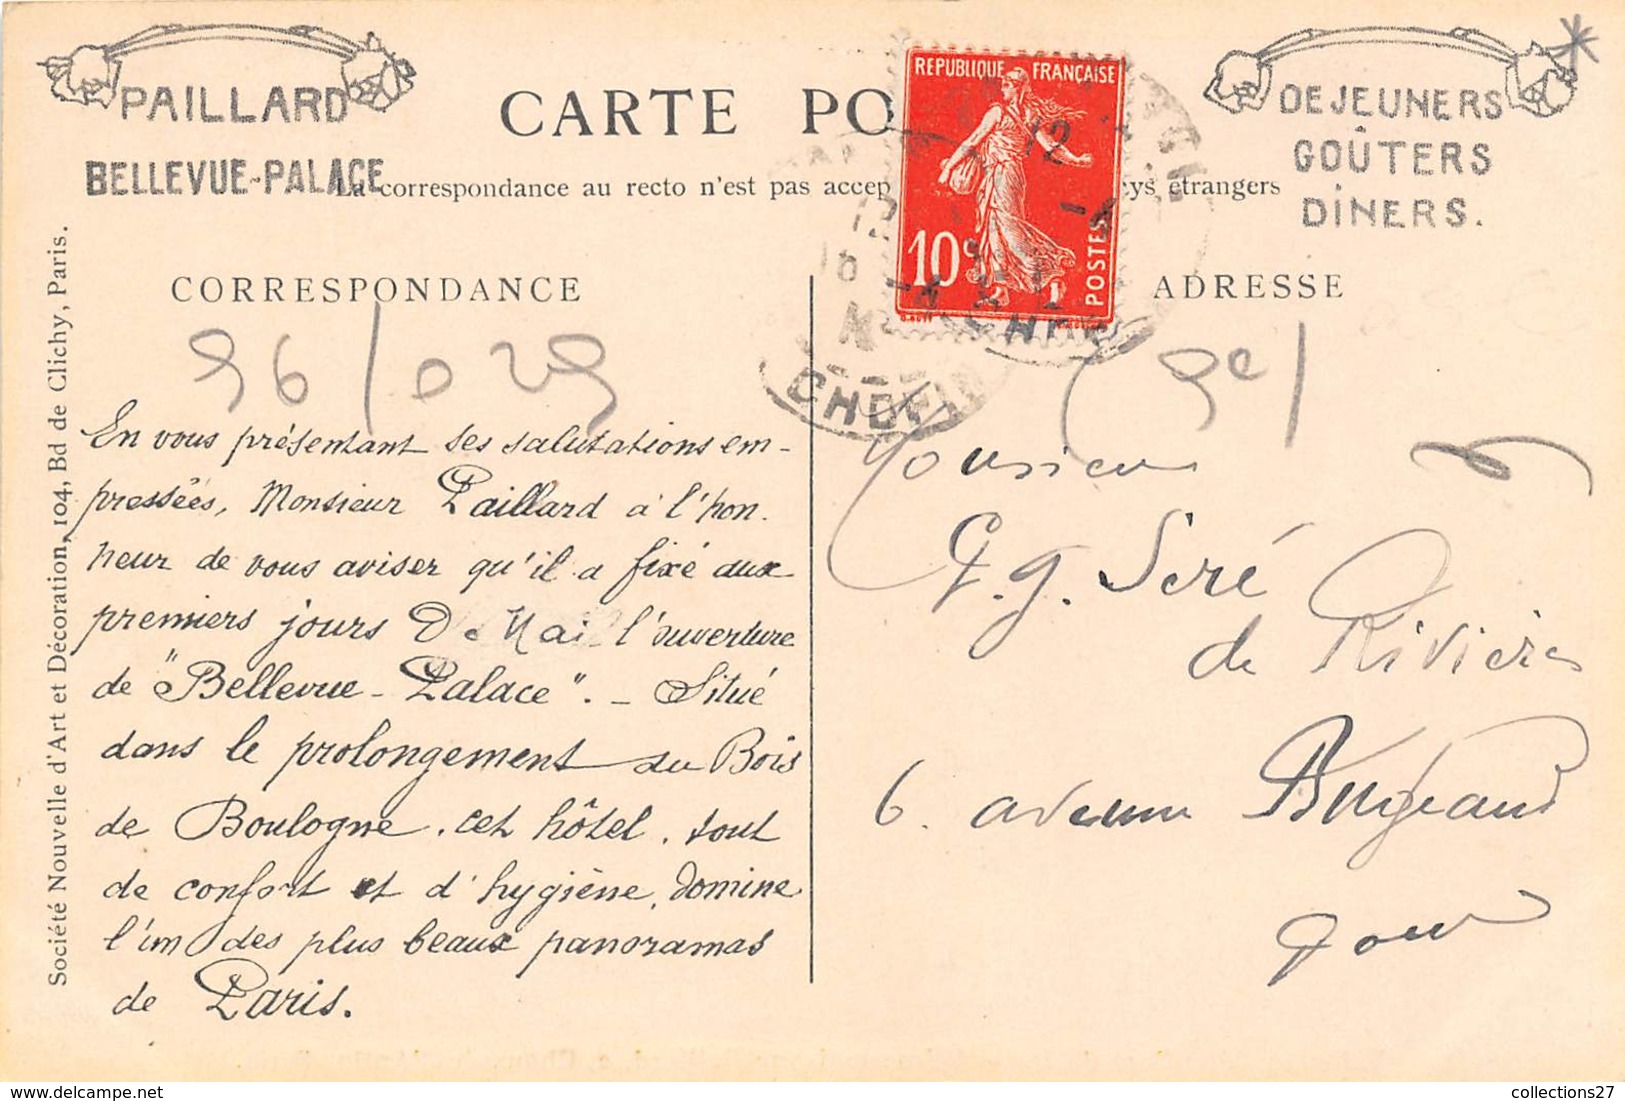 PAILLARD
BELLEVUE-PALACE
CARTE PO
La correspondance au recto n'est pas accep
ys étrangers
DEJEUNERS
GOÛTERS
DINERS.
REPUBLIQUE FRANÇAISE
10c
POSTES
CORRESPONDANCE
ADRESSE
Société Nouvelle d'Art et Décoration, 104, Bd de Clichy, Paris.
En vous présentant ses salutations em-
pressées, Monsieur Paillard a l'hon.
neur de vous aviser qu'il a fixé aux
premiers jours De Mai l'ouverture
de "Bellevue-Palace". - Situé
dans le prolongement du Bois
de Boulogne, cet hôtel, tout
de confort et d'hygiène, domine
l'un des plus beaux panoramas
de Paris.
Monsieur
G. Séré
de Rivières
6. avenue Bugeaud
collections27